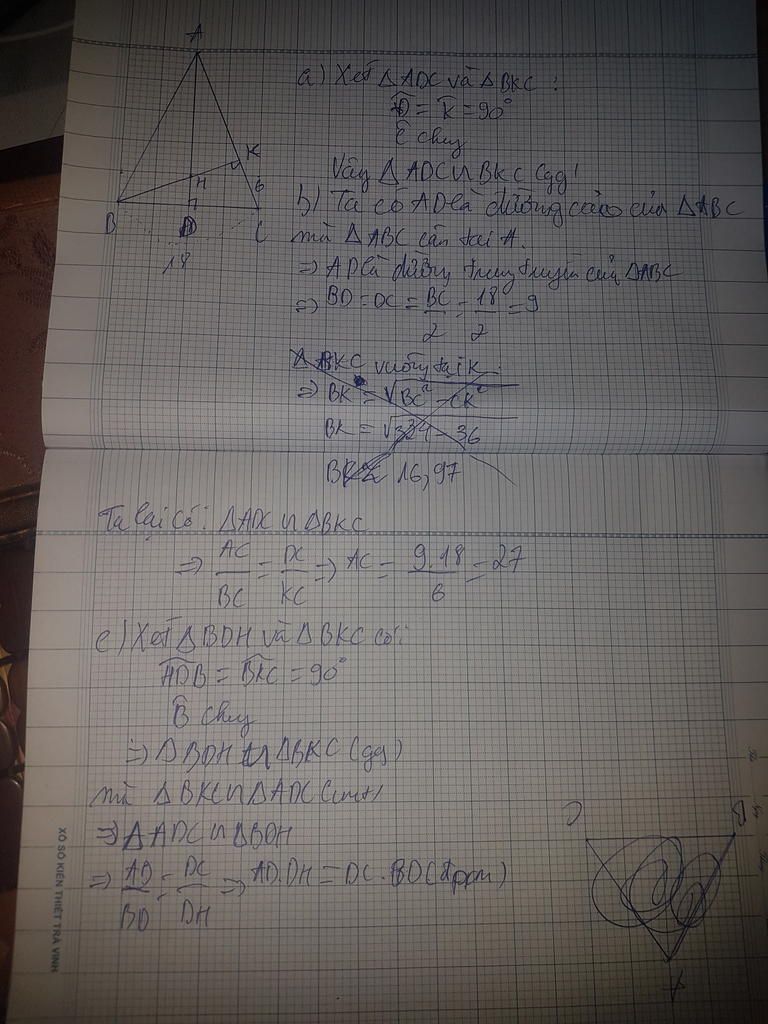 A
K
H
6
B
D
C
18
a) Xét △ADC và △BKC :
D̂ = K̂ = 90°
Ĉ chung
Vậy △ADC ∽ △BKC (gg)
b) Ta có AD là đường cao của △ABC
mà △ABC cân tại A.
=> AD là đường trung tuyến của △ABC
=> BD = DC = BC/2 = 18/2 = 9
△BKC vuông tại K
=> BK = √BC² - CK²
BK = √324 - 36
BK ≈ 16,97
Ta lại có: △ADC ∽ △BKC
=> AC/BC = DC/KC => AC = 9.18/6 = 27
c) Xét △BDH và △BKC có:
HDB = BKC = 90°
B̂ chung
=> △BDH ∽ △BKC (gg)
mà △BKC ∽ △ADC (cmt)
=> △ADC ∽ △BDH
=> AD/BD = DC/DH => AD.DH = DC.BD (đpcm)
B
A
XỔ SỐ KIẾN THIẾT TRÀ VINH